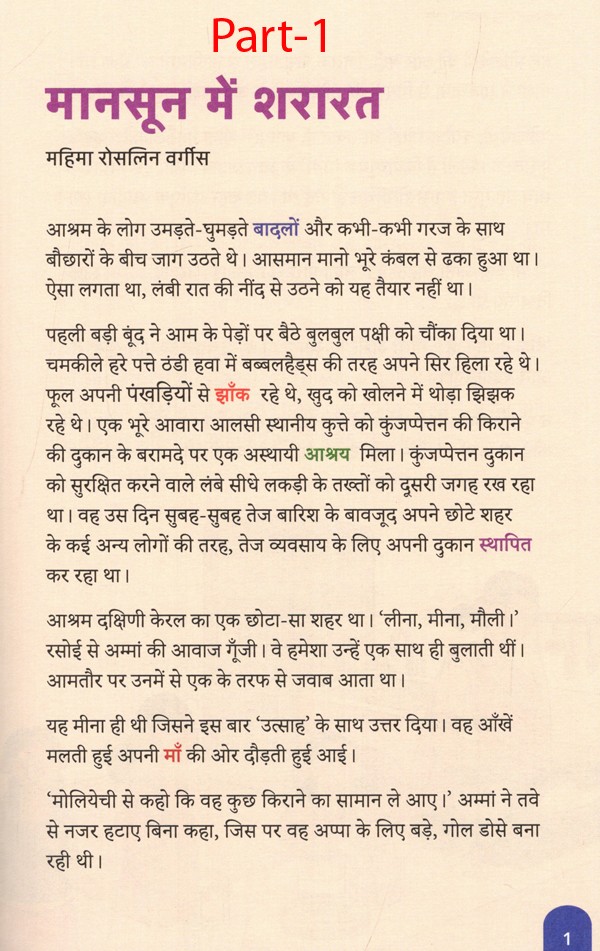 Part-1
मानसून में शरारत
महिमा रोसलिन वर्गीस
आश्रम के लोग उमड़ते-घुमड़ते बादलों और कभी-कभी गरज के साथ
बौछारों के बीच जाग उठते थे। आसमान मानो भूरे कंबल से ढका हुआ था।
ऐसा लगता था, लंबी रात की नींद से उठने को यह तैयार नहीं था।
पहली बड़ी बूंद ने आम के पेड़ों पर बैठे बुलबुल पक्षी को चौंका दिया था।
चमकीले हरे पत्ते ठंडी हवा में बब्बलहैड्स की तरह अपने सिर हिला रहे थे।
फूल अपनी पंखड़ियों से झाँक रहे थे, खुद को खोलने में थोड़ा झिझक
रहे थे। एक भूरे आवारा आलसी स्थानीय कुत्ते को कुंजप्पेत्तन की किराने
की दुकान के बरामदे पर एक अस्थायी आश्रय मिला। कुंजप्पेत्तन दुकान
को सुरक्षित करने वाले लंबे सीधे लकड़ी के तख्तों को दूसरी जगह रख रहा
था। वह उस दिन सुबह-सुबह तेज बारिश के बावजूद अपने छोटे शहर
के कई अन्य लोगों की तरह, तेज व्यवसाय के लिए अपनी दुकान स्थापित
कर रहा था।
आश्रम दक्षिणी केरल का एक छोटा-सा शहर था। ‘लीना, मीना, मौली।’
रसोई से अम्मां की आवाज गूँजी। वे हमेशा उन्हें एक साथ ही बुलाती थीं।
आमतौर पर उनमें से एक के तरफ से जवाब आता था।
यह मीना ही थी जिसने इस बार ‘उत्साह’ के साथ उत्तर दिया। वह आँखें
मलती हुई अपनी माँ की ओर दौड़ती हुई आई।
‘मोलियेची से कहो कि वह कुछ किराने का सामान ले आए।’ अम्मां ने तवे
से नजर हटाए बिना कहा, जिस पर वह अप्पा के लिए बड़े, गोल डोसे बना
रही थी।
1